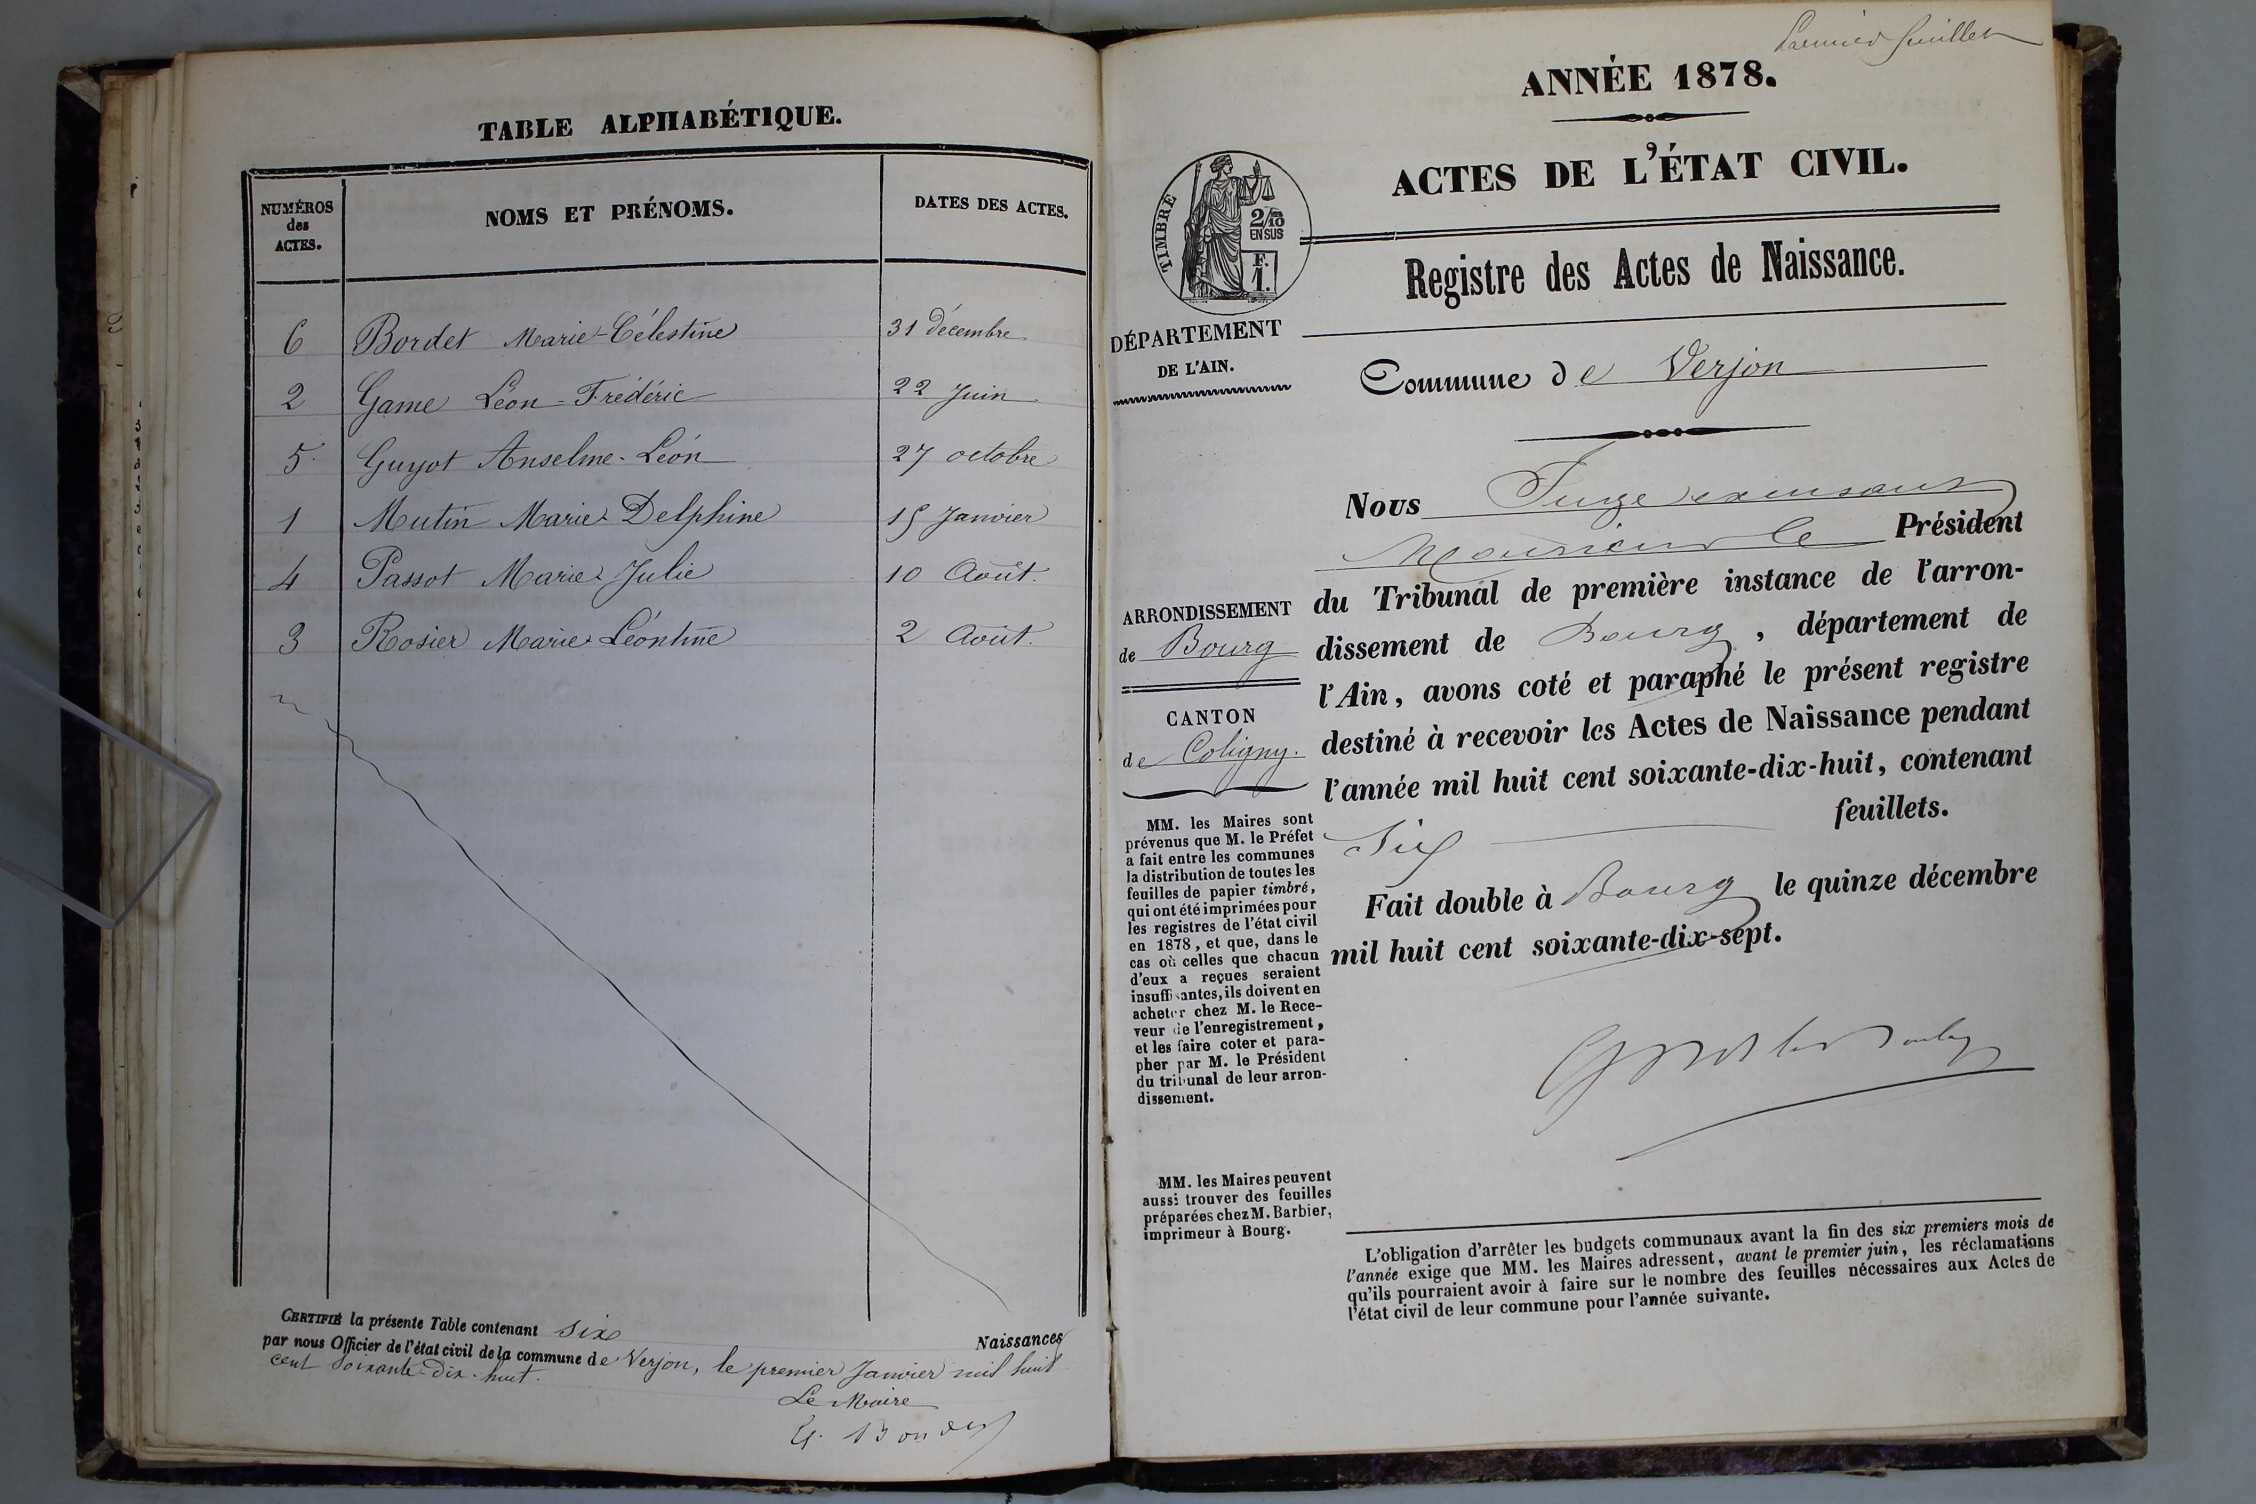 TABLE ALPHABÉTIQUE.
NUMÉROS des ACTES.
NOMS ET PRÉNOMS.
DATES DES ACTES.
6 Bordet Marie-Célestine 31 décembre
2 Game Léon-Frédéric 22 Juin
5 Guyot Anselme-Léon 27 octobre
1 Mutin Marie Delphine 15 Janvier
4 Passot Marie Julie 10 Août.
3 Rosier Marie Léontine 2 Août.
CERTIFIÉ la présente Table contenant six Naissances
par nous Officier de l'état civil de la commune de Verjon, le premier Janvier mil huit
cent soixante-dix-huit.
Le Maire
Premier feuillet
ANNÉE 1878.
ACTES DE L'ÉTAT CIVIL.
TIMBRE
2/10
EN SUS
F.
1.
Registre des Actes de Naissance.
DÉPARTEMENT
DE L'AIN.
Commune de Verjon
ARRONDISSEMENT
de Bourg
CANTON
de Coligny.
MM. les Maires sont
prévenus que M. le Préfet
a fait entre les communes
la distribution de toutes les
feuilles de papier timbré,
qui ont été imprimées pour
les registres de l'état civil
en 1878, et que, dans le
cas où celles que chacun
d'eux a reçues seraient
insuffisantes, ils doivent en
acheter chez M. le Rece-
veur de l'enregistrement,
et les faire coter et para-
pher par M. le Président
du tribunal de leur arron-
dissement.
MM. les Maires peuvent
aussi trouver des feuilles
préparées chez M. Barbier,
imprimeur à Bourg.
Nous Juge
Monsieur le Président
du Tribunal de première instance de l'arron-
dissement de Bourg, département de
l'Ain, avons coté et paraphé le présent registre
destiné à recevoir les Actes de Naissance pendant
l'année mil huit cent soixante-dix-huit, contenant
Six feuillets.
Fait double à Bourg le quinze décembre
mil huit cent soixante-dix-sept.
L'obligation d'arrêter les budgets communaux avant la fin des six premiers mois de
l'année exige que MM. les Maires adressent, avant le premier juin, les réclamations
qu'ils pourraient avoir à faire sur le nombre des feuilles nécessaires aux Actes de
l'état civil de leur commune pour l'année suivante.